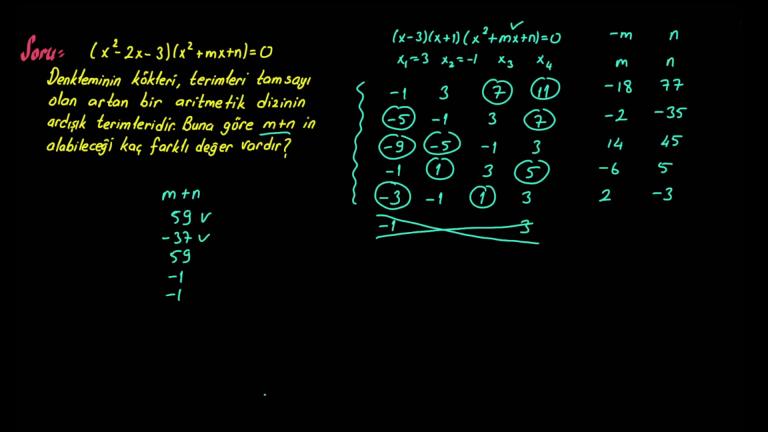 Soru= (x²-2x-3)(x²+mx+n)=0
Denkleminin kökleri, terimleri tamsayı
olan artan bir aritmetik dizinin
ardışık terimleridir. Buna göre m+n in
alabileceği kaç farklı değer vardır?
m+n
59 ✓
-37 ✓
59
-1
-1
(x-3)(x+1)(x²+mx+n)=0
x₁=3 x₂=-1 x₃ x₄
-m n
m n
-1 3 7 11 -18 77
-5 -1 3 7 -2 -35
-9 -5 -1 3 14 45
-1 1 3 5 -6 5
-3 -1 1 3 2 -3
-1 3